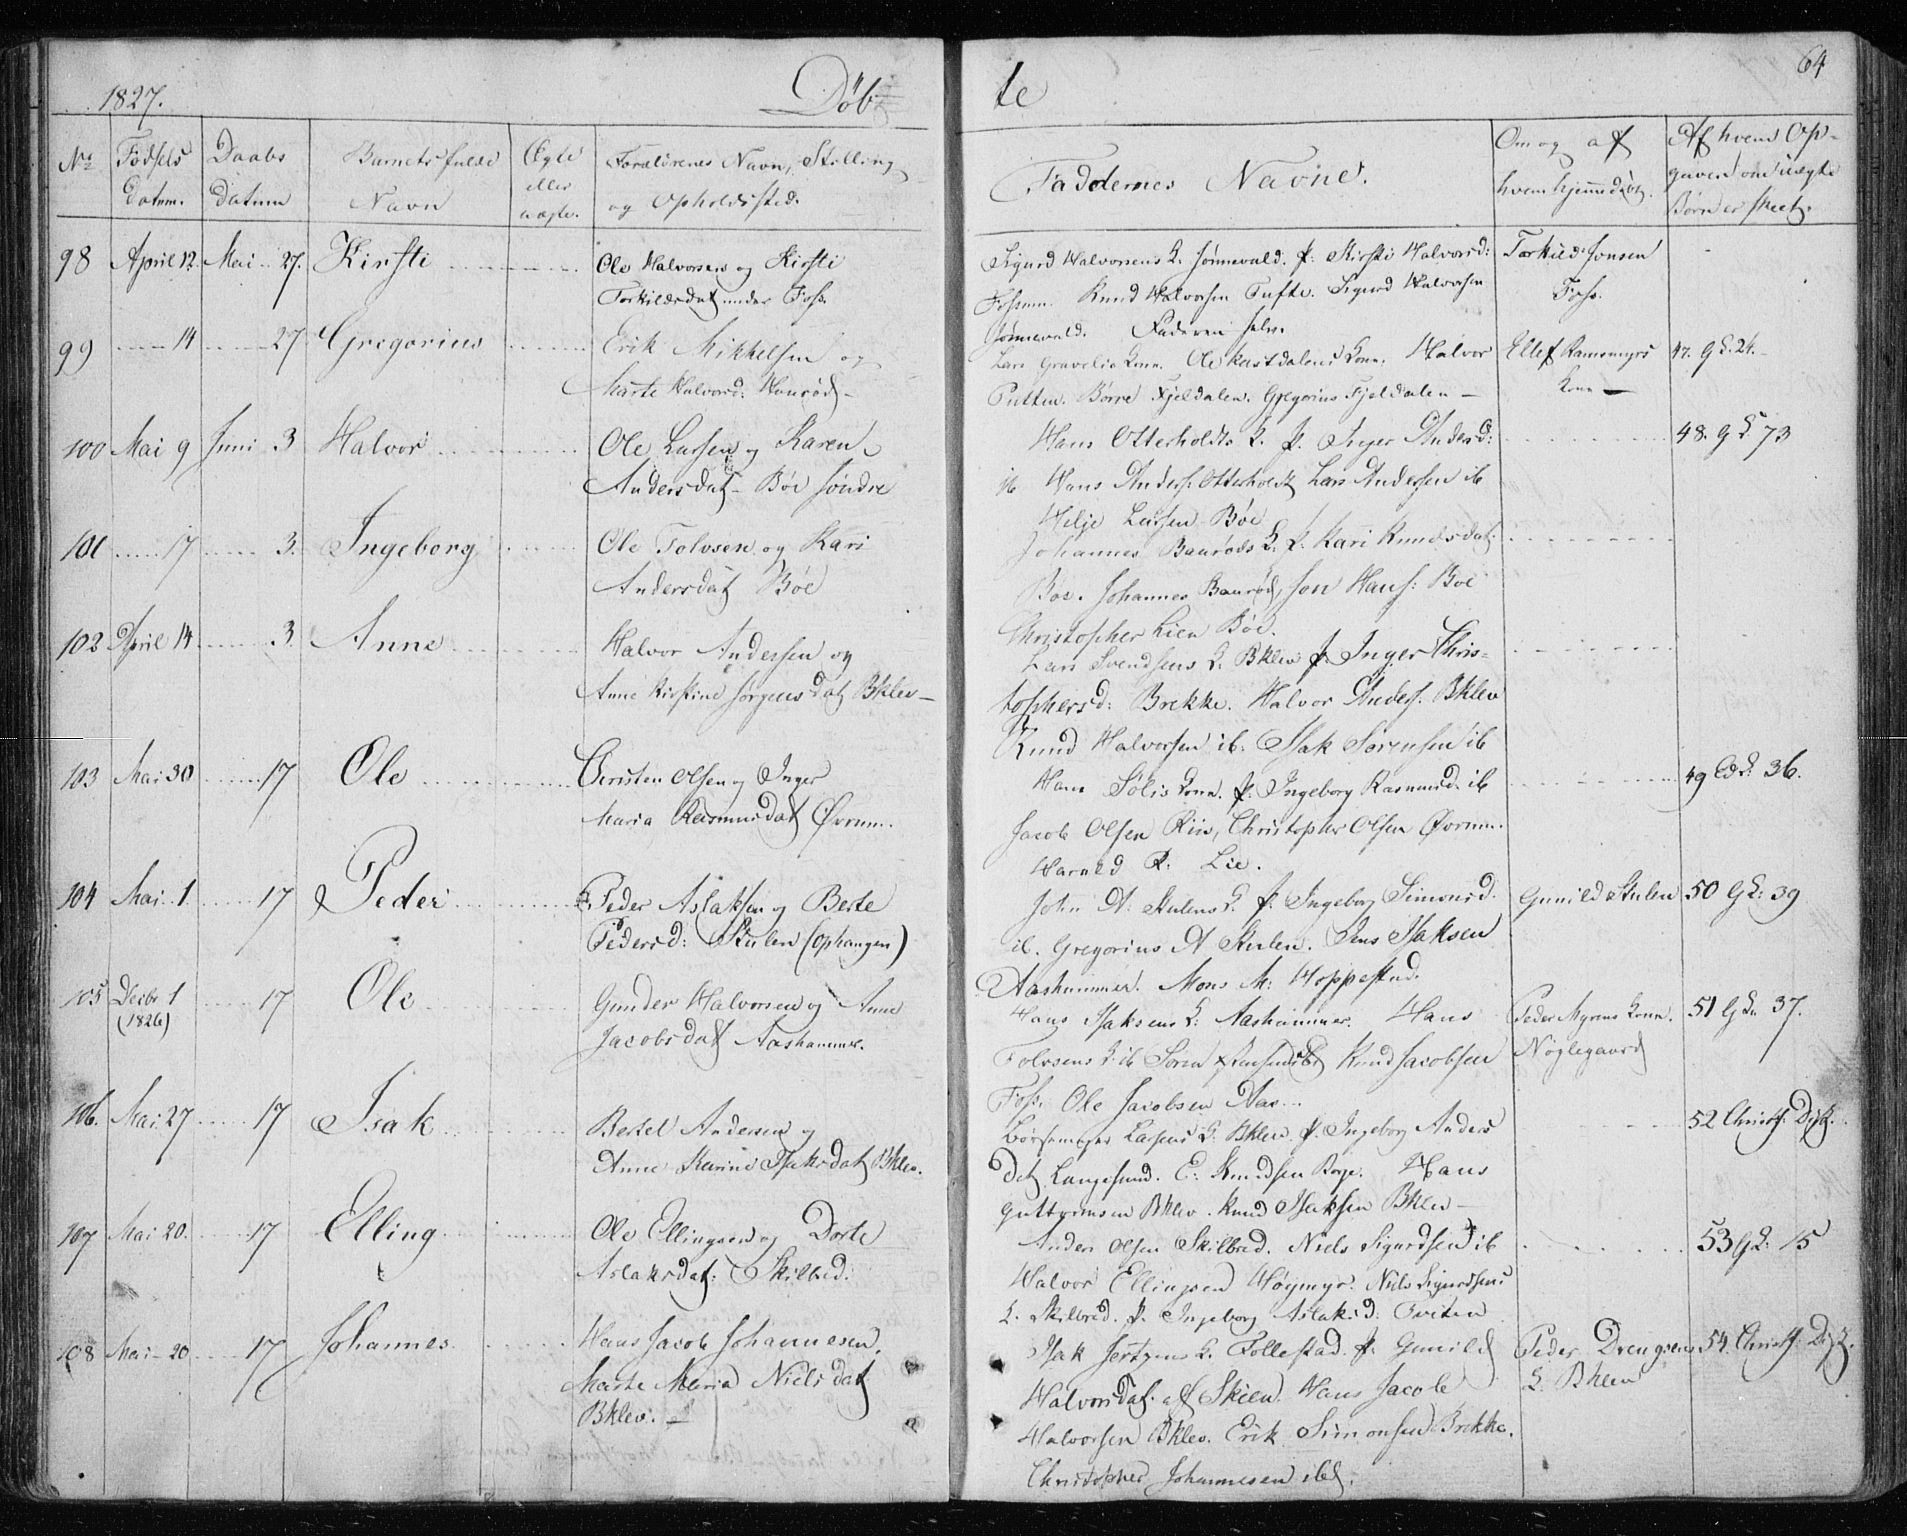 1827.
Döb
te
64
No
Födsels
Datum.
Daabs
Datum
Barnets fulde
Navn
Ægte
eller
uægte.
Forældrenes Navn, Stilling
og Opholdssted.
Faddernes Navne.
Om og af
hvem hjemmedöbt.
Af hvem Op-
given om uægte
Börn er skeet.
98 April 12. Mai 27. Kirsti
Ole Halvorsen og Kirsti
Torkildsdat under Foss.
Sigurd Halvorsens K. Jönnevald. P. Kirsti Halvorsd:
Fossum Knud Halvorsen Tufte. Sigurd Halvorsen
Jönnevald. Faderen selv.
Torkild Jonsen
Foss.
99 14 27 Gregorius
Erik Mikkelsen og
Marte Halvorsd:
Lars Gravelie Kone. Ole Kone. Halvor
Putten. Börre Fjeldalen. Gregorius Fjeldalen
Ellef Ramsmyrs
Kone
47. G L. 24.
100 Mai 9 Juni 3 Halvor
Ole Larsen og Karen
Andersdat Böe söndre
Hans Otterholdts K. P. Inger Andersd:
ib Hans Anders. Otterholdt Lars Andersen ib
Helje Larsen Böe
48. G L 73
101 17 3. Ingeborg
Ole Tolvsen og Kari
Andersdat Böe
Johannes Baaröds K. P. Kari Knudsdat.
Böe. Johannes Baaröd, Jon Hans: Böe
Christopher Lien Böe.
102 April 14 3. Anne
Halvor Andersen og
Anne Kirstine Jörgensdat Bklev
Lars Svendsens K. Bklev P. Inger Chris-
tophersd: Brekke. Halvor Anders. Bklev
Knud Halvorsen ib. Isak Sörensen ib
103 Mai 30 17 Ole
Christen Olsen og Inger
Maria Rasmusdat Övrum.
Hans Solis Kone. P. Ingeborg Rasmusd. ib
Jacob Olsen Riis, Christopher Olsen Övrum.
Harald R. Lie.
49 36.
104 Mai 1 17 Peder
Peder Aslaksen og Berte
Pedersd: Stulen (Ophaugen)
John A. Stulens K. P. Ingeborg Simonsd.
ib. Gregorius A Stulen. Jens Isaksen
Aashammer. Mons M: Hoppestad.
Gunild Stulen
50 G L: 39
105 Decbr 1
(1826)
17 Ole
Gunder Halvorsen og Anne
Jacobsdat Aashammer.
Hans Isaksens K: Aashammer. Hans
Tolvsens K. ib Sören Knud Jacobsen
Foss. Ole Jacobsen Aas
Peder Myrens Kone.
Nöglegaard
51 G L. 37.
106. Mai 27 17 Isak
Bertel Andersen og
Anne Karine Isaksdat Bklev.
K. Bklev P. Ingeborg Anders
dat Langesund. E: Knudsen Borge. Hans
Guttormsen Bklev. Knud Isaksen Bklev
52 Christ. Dist.
107 Mai 20. 17 Elling
Ole Ellingsen og Dorte
Aslaksdat. Skilbred.
Anders Olsen Skilbred. Niels Sigurdsen ib
Halvor Ellingsen Högmyr. Niels Sigurdsens
K. Skilbred. P. Ingeborg Aslaksd: Tveten
53 G L. 15
108 Mai 20 17 Johannes
Hans Jacob Johannesen.
Marte Maria Nielsdat
Bklev.
Isak K. Follestad. P. Gunild
Halvorsdat. af Skien. Hans Jacob
Halvorsen Bklev. Erik Simonsen Brekke.
Christopher Johannesen ibd.
Peder Drengsens
K. Bklev
54. Christ. Dist.